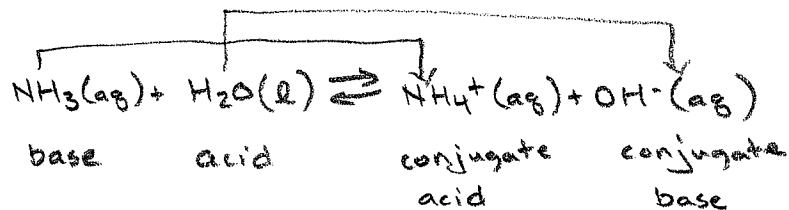 NH3(aq) + H2O(l) ⇌ NH4+(aq) + OH-(aq)
base acid conjugate acid conjugate base